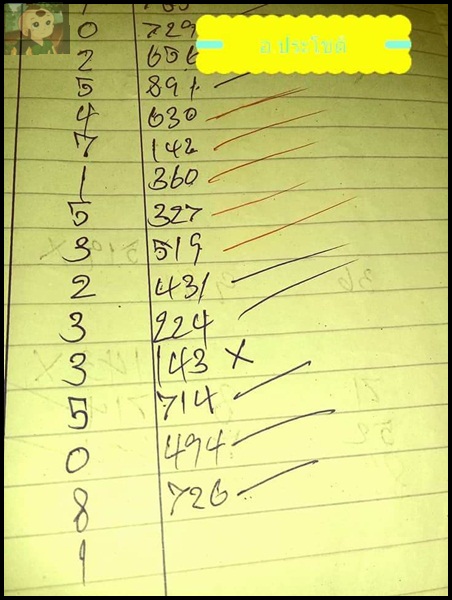 0 729
2 656
5 891
4 630
7 142
1 360
5 327
3 519
2 431
3 224
3 143 X
5 714
0 494
8 726
1